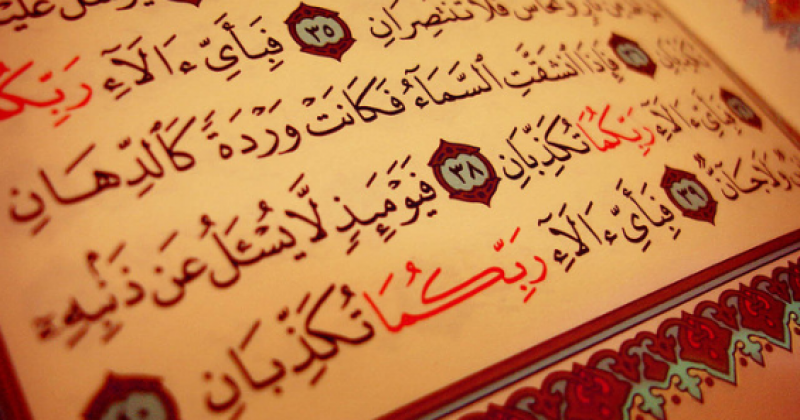 يُرْسَلُ عَلَيْ
مِّن نَّارٍ وَنُحَاسٌ فَلَا تَنتَصِرَانِ ٣٥ فَبِأَيِّ ءَالَآءِ رَبِّكُ
تُكَذِّبَانِ ٣٦ فَإِذَا ٱنشَقَّتِ ٱلسَّمَآءُ فَكَانَتْ وَرْدَةً كَٱلدِّهَانِ
٣٧ فَبِأَيِّ ءَالَآءِ رَبِّكُمَا تُكَذِّبَانِ ٣٨ فَيَوْمَئِذٍ لَّا يُسْـَٔلُ عَن ذَنۢبِهِۦٓ
وَلَا جَآنٌّ ٣٩ فَبِأَيِّ ءَالَآءِ رَبِّكُمَا تُكَذِّبَانِ ٤٠